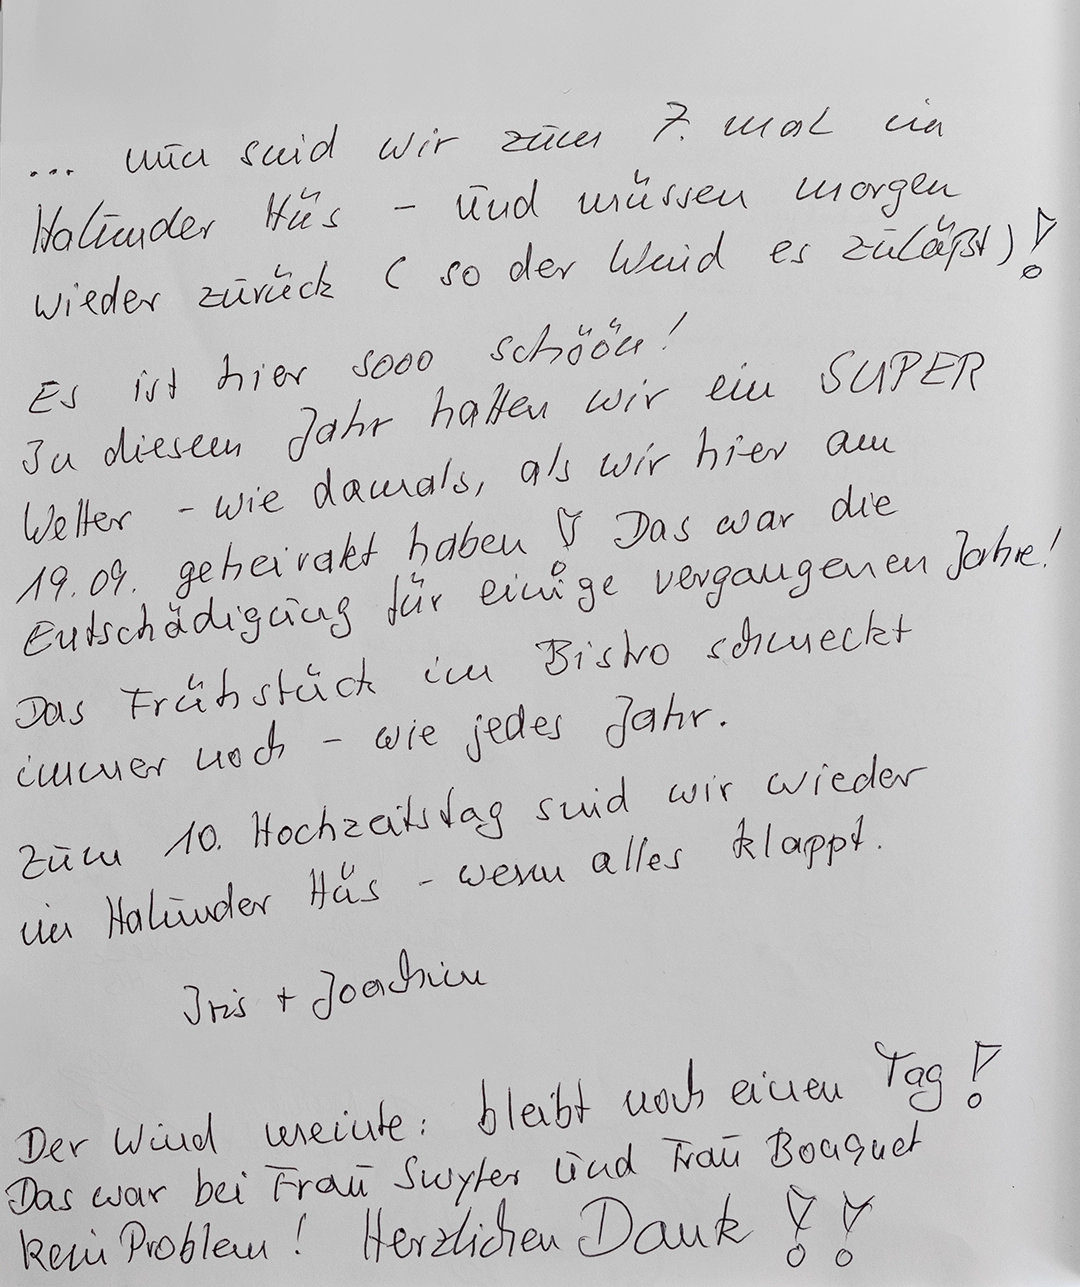 ... nun sind wir zum 7. mal im
Halunder Hüs - und müssen morgen
wieder zurück (so der Wind es zuläßt)!
Es ist hier sooo schöön!
In diesem Jahr hatten wir ein SUPER
Wetter - wie damals, als wir hier am
19.09. geheiratet haben! Das war die
Entschädigung für einige vergangenen Jahre!
Das Frühstück im Bistro schmeckt
immer noch - wie jedes Jahr.
Zum 10. Hochzeitstag sind wir wieder
im Halunder Hüs - wenn alles klappt.
Iris + Joachim
Der Wind meinte: bleibt noch einen Tag!
Das war bei Frau Swyter und Frau Bouquet
kein Problem! Herzlichen Dank!!